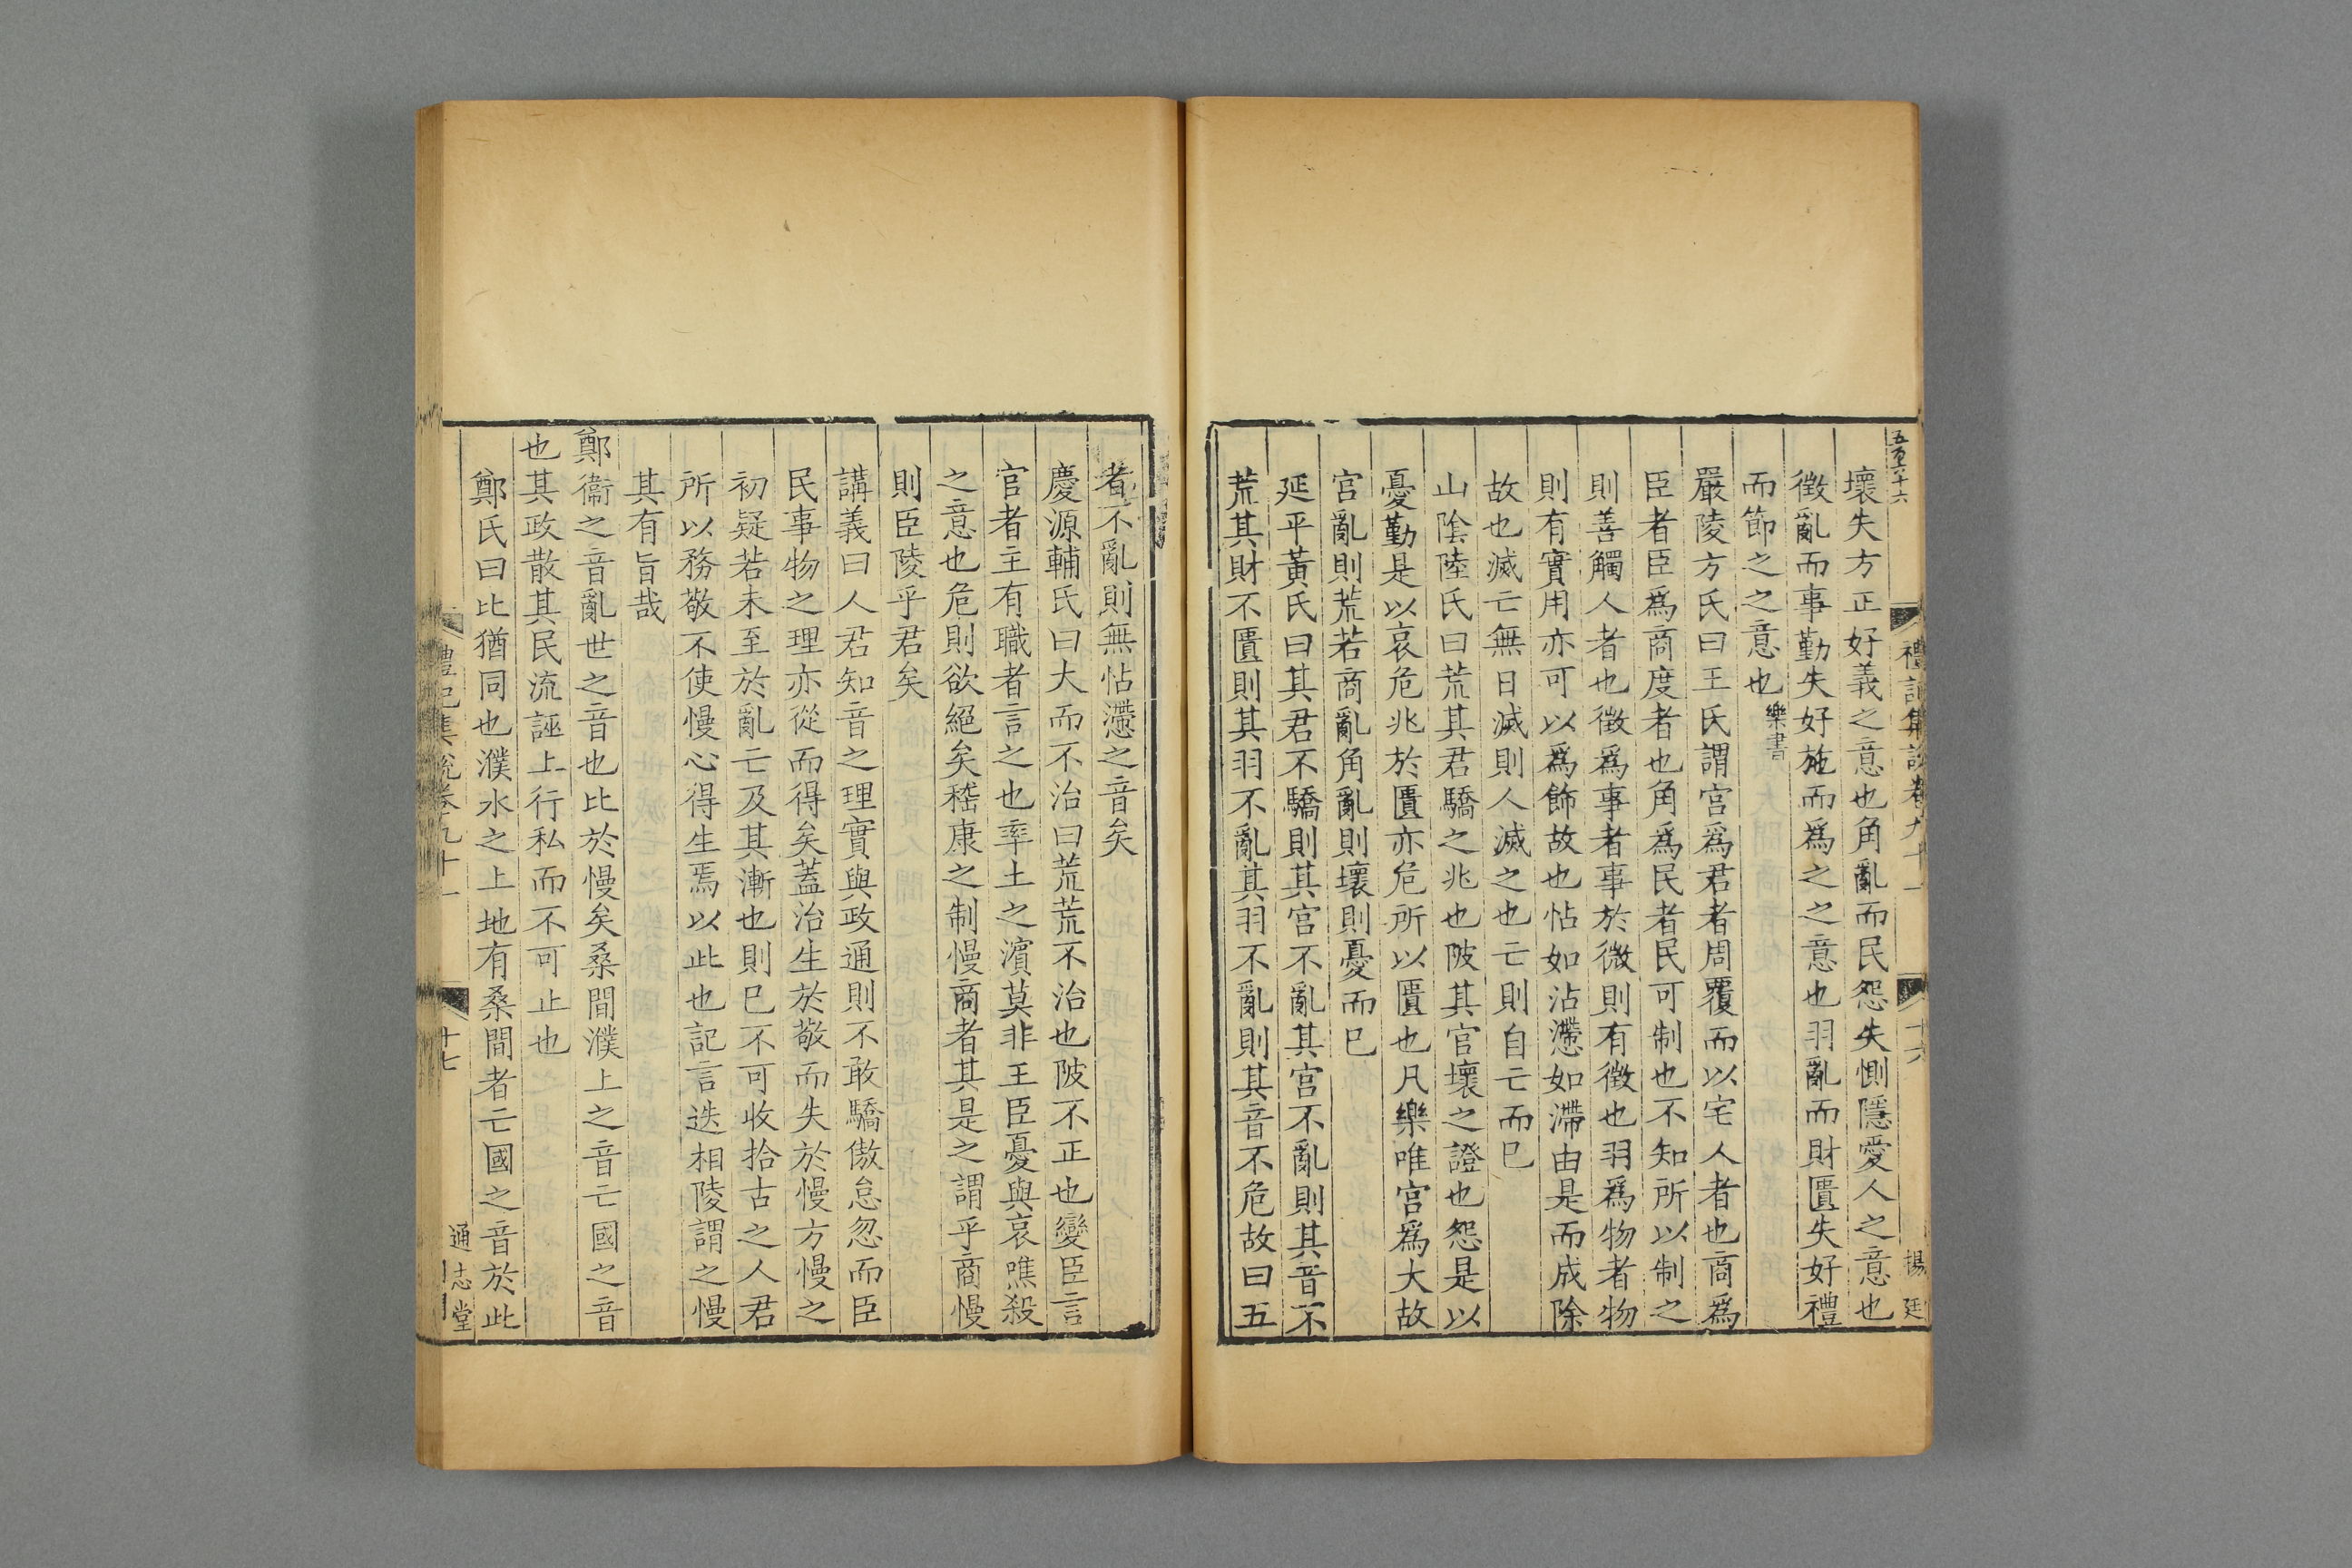 五百六十六
禮記集說卷九十一
十六
楊廷
壞失方正好義之意也角亂而民怨失惻隱愛人之意也
徵亂而事勤失好施而爲之之意也羽亂而財匱失好禮
而節之之意也樂書
嚴陵方氏曰王氏謂宮爲君者周覆而以宅人者也商爲
臣者臣爲商度者也角爲民者民可制也不知所以制之
則善觸人者也徵爲事者事於微則有徵也羽爲物者物
則有實用亦可以爲飾故也怗如沾懘如滯由是而成除
故也滅亡無日滅則人滅之也亡則自亡而已
山陰陸氏曰荒其君驕之兆也陂其官壞之證也怨是以
憂勤是以哀危兆於匱亦危所以匱也凡樂唯宮爲大故
宮亂則荒若商亂角亂則壞則憂而已
延平黃氏曰其君不驕則其宮不亂其宮不亂則其音不
荒其財不匱則其羽不亂其羽不亂則其音不危故曰五
者不亂則無怗懘之音矣
慶源輔氏曰大而不治曰荒荒不治也陂不正也變臣言
官者主有職者言之也率土之濱莫非王臣憂與哀噍殺
之意也危則欲絕矣嵇康之制慢商者其是之謂乎商慢
則臣陵乎君矣
講義曰人君知音之理實與政通則不敢驕傲怠忽而臣
民事物之理亦從而得矣蓋治生於敬而失於慢方慢之
初疑若未至於亂亡及其漸也則已不可收拾古之人君
所以務敬不使慢心得生焉以此也記言迭相陵謂之慢
其有旨哉
鄭衞之音亂世之音也比於慢矣桑間濮上之音亡國之音
也其政散其民流誣上行私而不可止也
鄭氏曰比猶同也濮水之上地有桑間者亡國之音於此
禮記集說卷九十一
十七
通志堂